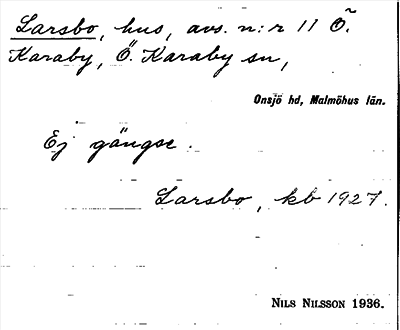 Larsbo, hus, avs. n:r 11 Ö.
Karaby, Ö. Karaby sn,
Onsjö hd, Malmöhus län.
Ej gängse.
Larsbo, kb 1927.
NILS NILSSON 1936.